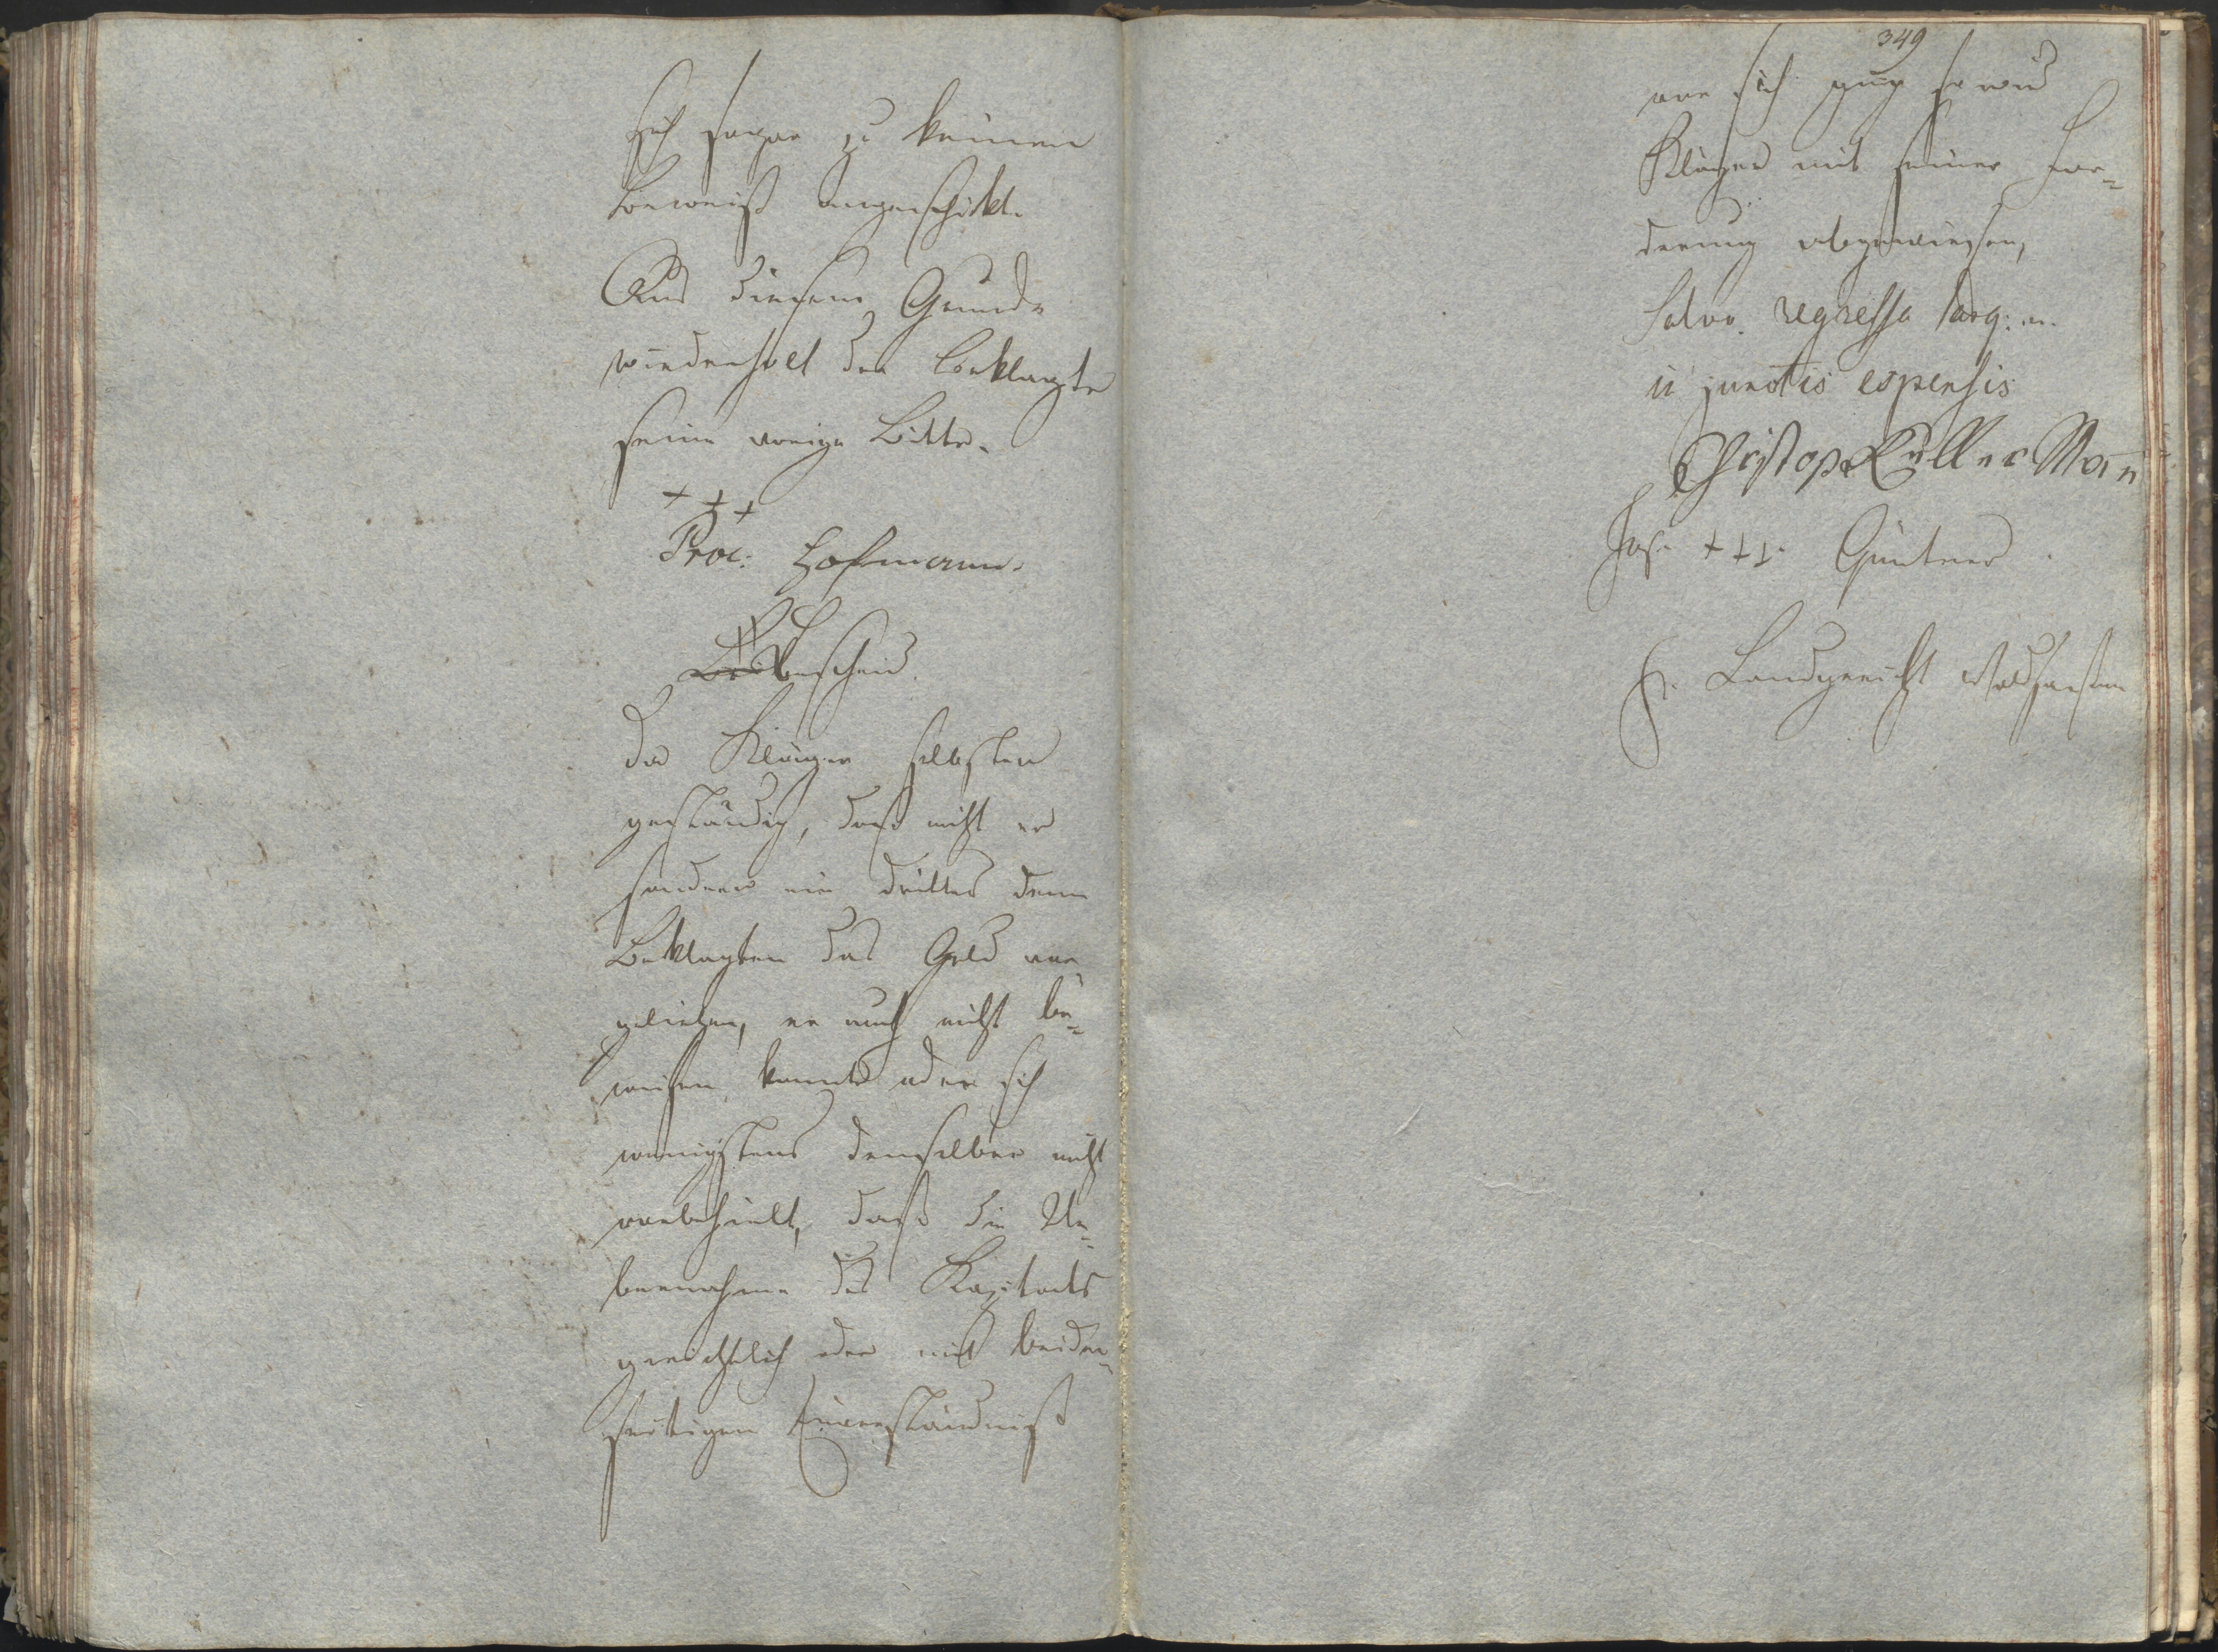 sich sogar zu keinem
Beweiß angeschikt.
Aus diesem Grunde
wiederholt der Beklagte
seine vorige Bitte.
+ + +
Proc: Hofmann.
Bescheid.
Da Kläger selbsten
geständig, daß nicht er
sondern ein dritter dem
Beklagten das Geld vor
geliehen, er auch nicht be¬
weisen konnte oder sich
wenigstens denselben nicht
vorbehielt, daß die Ue¬
bernahme des Kapitals
gerichtlich oder mit beider¬
seitigen Einverständniß
349
vor sich gieng so wird
Kläger mit seiner For¬
derung abgewiesen,
salvo regressu
junctis expensis
Christoph Küller Man
Jos. +++ Güntner
Landgericht Waldsassen